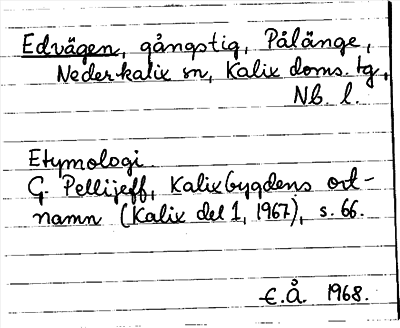 Edvägen, gångstig, Pålänge,
Nederkalix sn, Kalix doms. tg,
Nb. l.
Etymologi
G. Pellijeff, Kalixbygdens ort-
namn (Kalix del 1, 1967), s. 66.
E.Å. 1968.